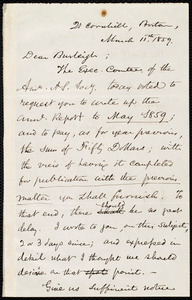 21 Cornhill, Boston,
March 11th 1859.
Dear Burleigh;
The Exec. Comtee of the
Am. A. S. Socy. today voted to
request you to write up the
Annl. Report to May 1859;
and to pay, as for year previous,
the sum of Fifty Dollars; with
the view of having it completed
for publication with the previous
matter you shall furnish. To
that end, there should be no great
delay. I wrote to you on this subject,
2 or 3 days since; and expressed in
detail what I thought we should
desire on that point.
Give us sufficient notice